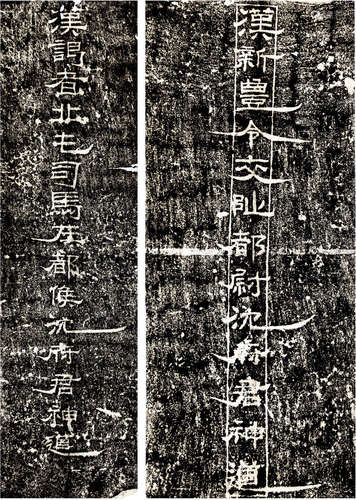 漢新豐令交阯都尉沈府君神道
漢謁者北屯司馬左都侯沈府君神道